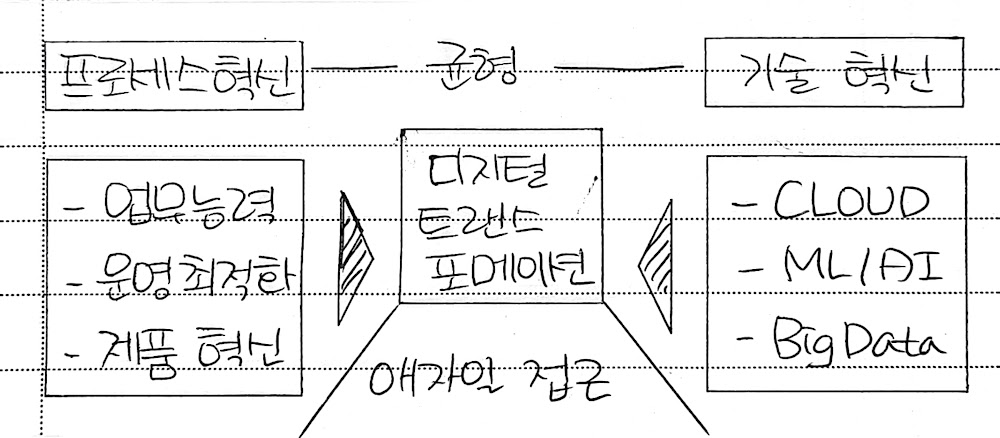 프로세스혁신
균형
기술 혁신
- 업무능력
- 운영최적화
- 제품 혁신
디지털
트랜스
포메이션
- CLOUD
- ML/AI
- Big Data
애자일 접근